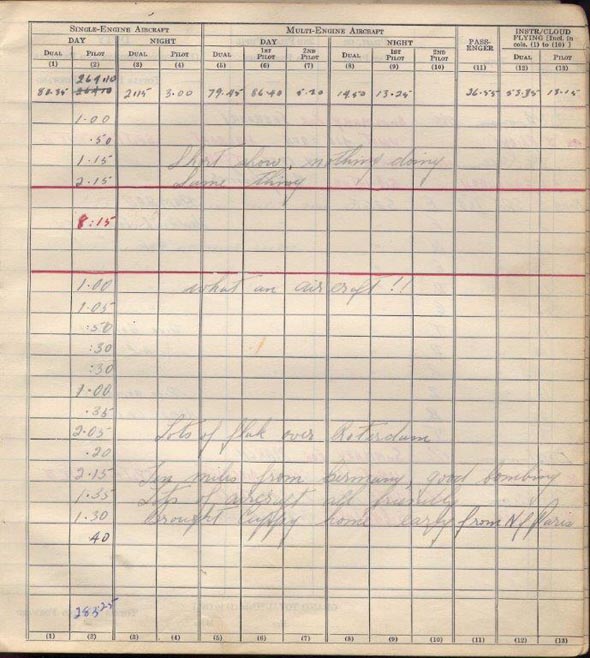 SINGLE-ENGINE AIRCRAFT MULTI-ENGINE AIRCRAFT PASS-ENGER INSTR/CLOUD FLYING [Incl. in cols. (1) to (10)]
DAY NIGHT DAY NIGHT
DUAL PILOT DUAL PILOT DUAL 1ST PILOT 2ND PILOT DUAL 1ST PILOT 2ND PILOT DUAL PILOT
(1) (2) (3) (4) (5) (6) (7) (8) (9) (10) (11) (12) (13)
264.10
2.15 3.00 79.45 86.40 13.25 26.55 53.35 13.15
1.00
.50
1.15 Short show, nothing doing
2.15 Same thing
8:15
1.00 what an aircraft!!
1.05
:50
:30
:30
1.00
.35
2.05 Lots of flak over Roterdam
.20
2.15 Ten miles from Germany, good bombing
1.35 Lots of aircraft all friendly
1.30 Brought home early from Paris
.40
283.25
(1) (2) (3) (4) (5) (6) (7) (8) (9) (10) (11) (12) (13)